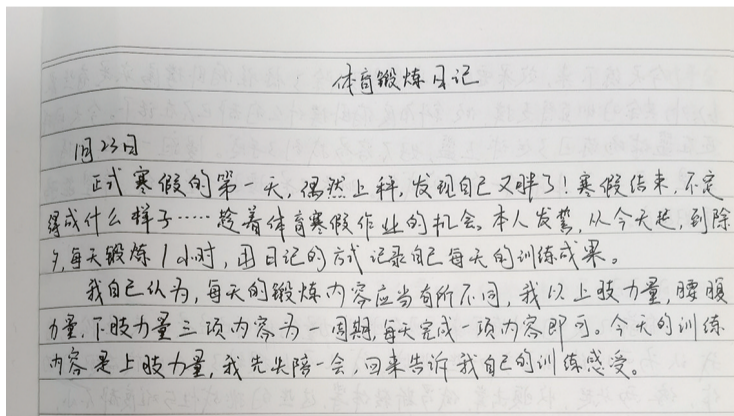 体育锻炼日记
1月23日
正式寒假的第一天,偶然上秤,发现自己又胖了!寒假结束,不定
得成什么样子……趁着体育寒假作业的机会。本人发誓,从今天起,到除
夕,每天锻炼1小时,用日记的方式记录自己每天的训练成果。
我自己认为,每天的锻炼内容应当有所不同,我以上肢力量,腰腹
力量,下肢力量三项内容为一周期,每天完成一项内容即可。今天的训练
内容是上肢力量,我先失陪一会,回来告诉我自己的训练感受。